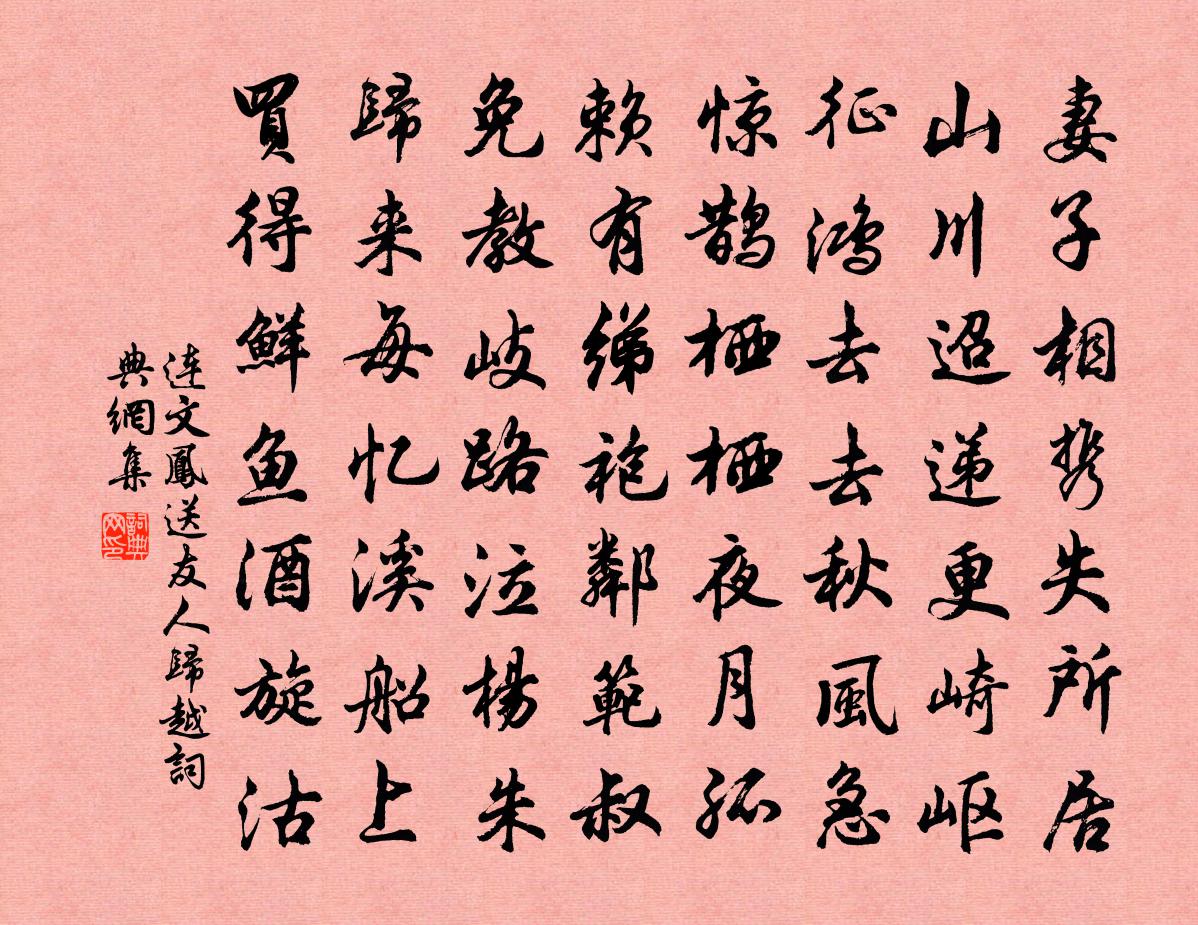 妻子相携失所居
山川迢递更崎岖
征鸿去去秋風急
惊鹊栖栖夜月孤
赖有绨袍鄰範叔
免教岐路泣楊朱
歸来每忆溪船上
買得鮮鱼酒旋沽
连文鳳送友人歸越詞
典網集
詞典
网印